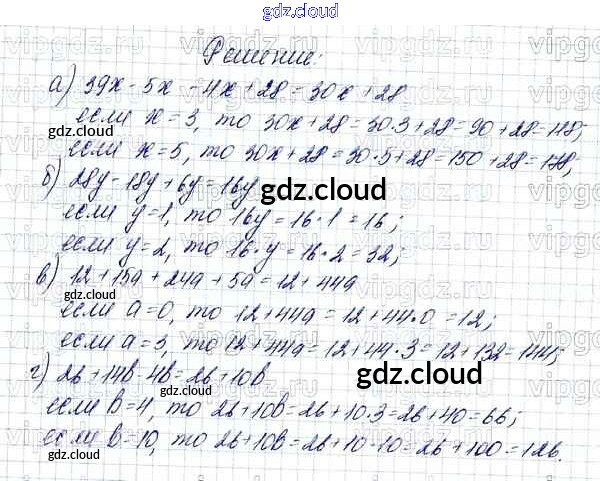 gdz.cloud
Решение:
а) 39x - 5x - 4x + 28 = 30x + 28
если x = 3, то 30x + 28 = 30·3 + 28 = 90 + 28 = 118;
gdz.cloud
если x = 5, то 30x + 28 = 30·5 + 28 = 150 + 28 = 178;
б) 28y - 18y + 6y = 16y
gdz.cloud
если y = 1, то 16y = 16·1 = 16;
если y = 2, то 16·y = 16·2 = 32;
в) 12 + 15a + 24a + 5a = 12 + 44a
gdz.cloud
если a = 0, то 12 + 44a = 12 + 44·0 = 12;
если a = 3, то 12 + 44a = 12 + 44·3 = 12 + 132 = 144;
gdz.cloud
г) 26 + 14b - 4b = 26 + 10b
gdz.cloud
если b = 4, то 26 + 10b = 26 + 10·3 = 26 + 40 = 66;
если b = 10, то 26 + 10b = 26 + 10·10 = 26 + 100 = 126.
gdz.cloud
gdz.cloud